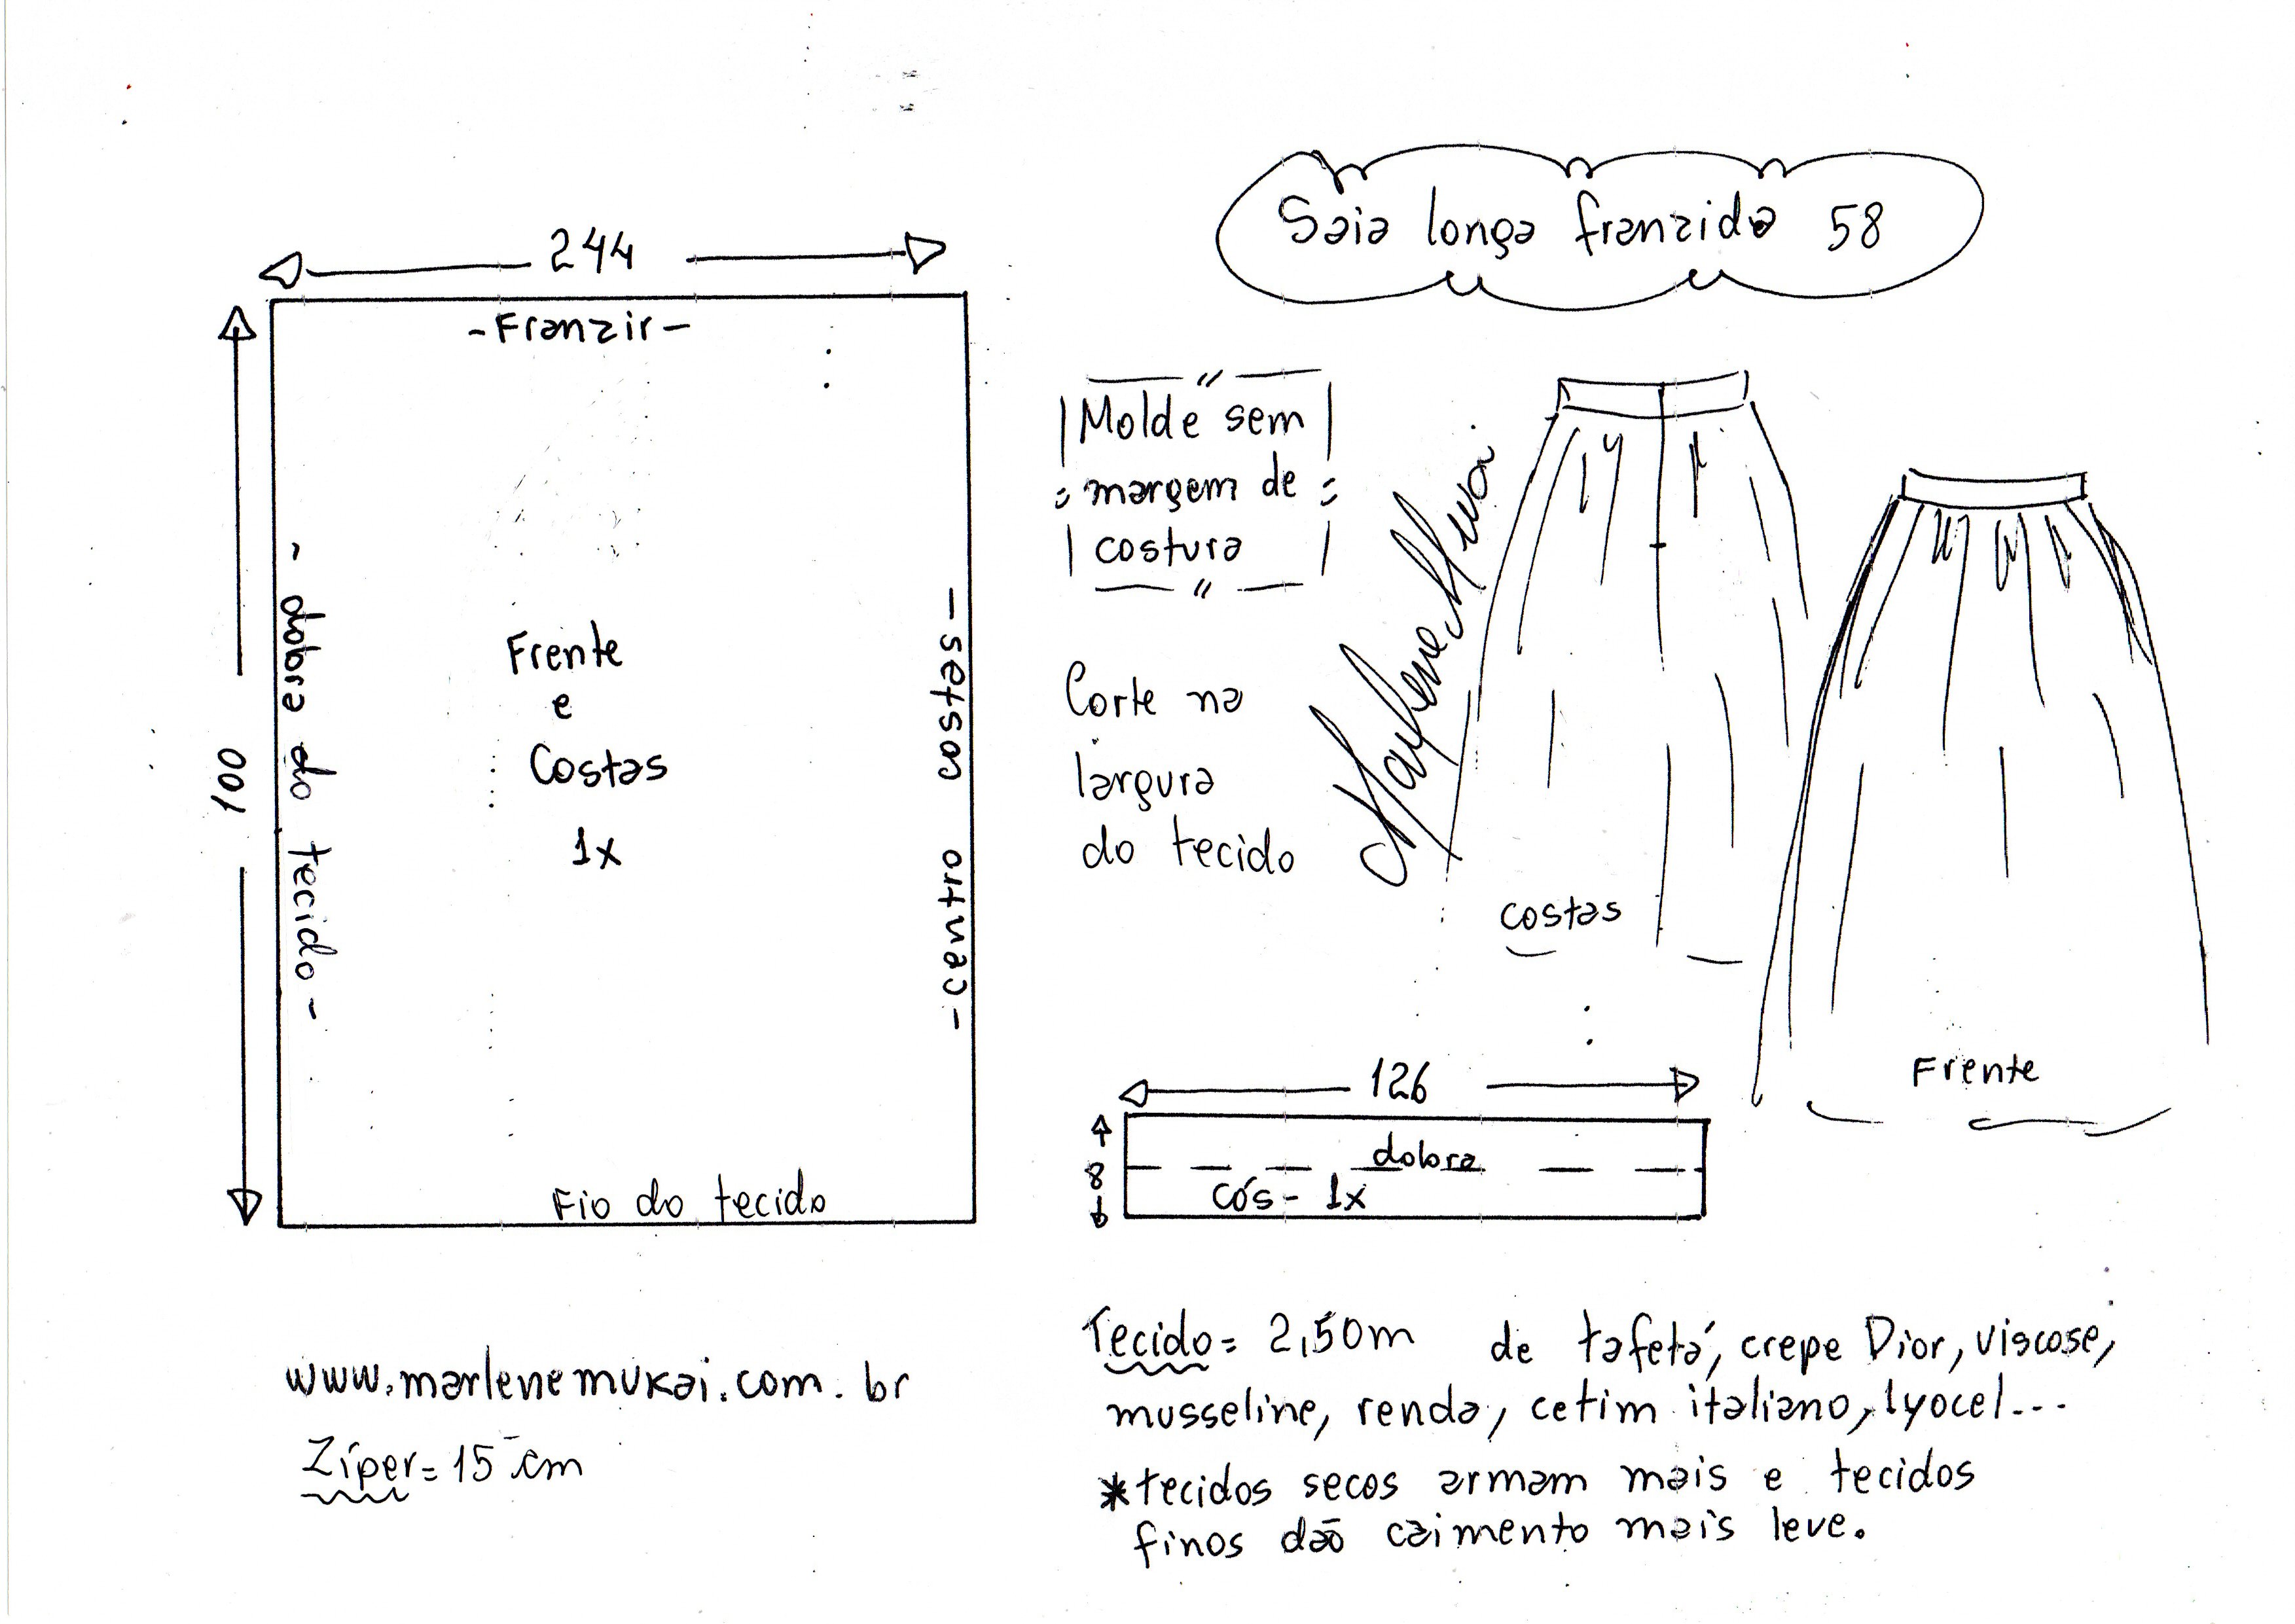 Saia longa franzida 58
244
-Franzir-
100
- dobra do tecido -
Frente
e
Costas
1x
-centro costas-
Fio do tecido
Molde sem
margem de
costura
Corte na
largura
do tecido
costas
Frente
126
8
dobra
cós- 1x
www.marlenemukai.com.br
Zíper= 15 cm
Tecido= 2,50m de tafetá, crepe Dior, viscose,
musseline, renda, cetim italiano, lyocel...
*tecidos secos armam mais e tecidos
finos dão caimento mais leve.